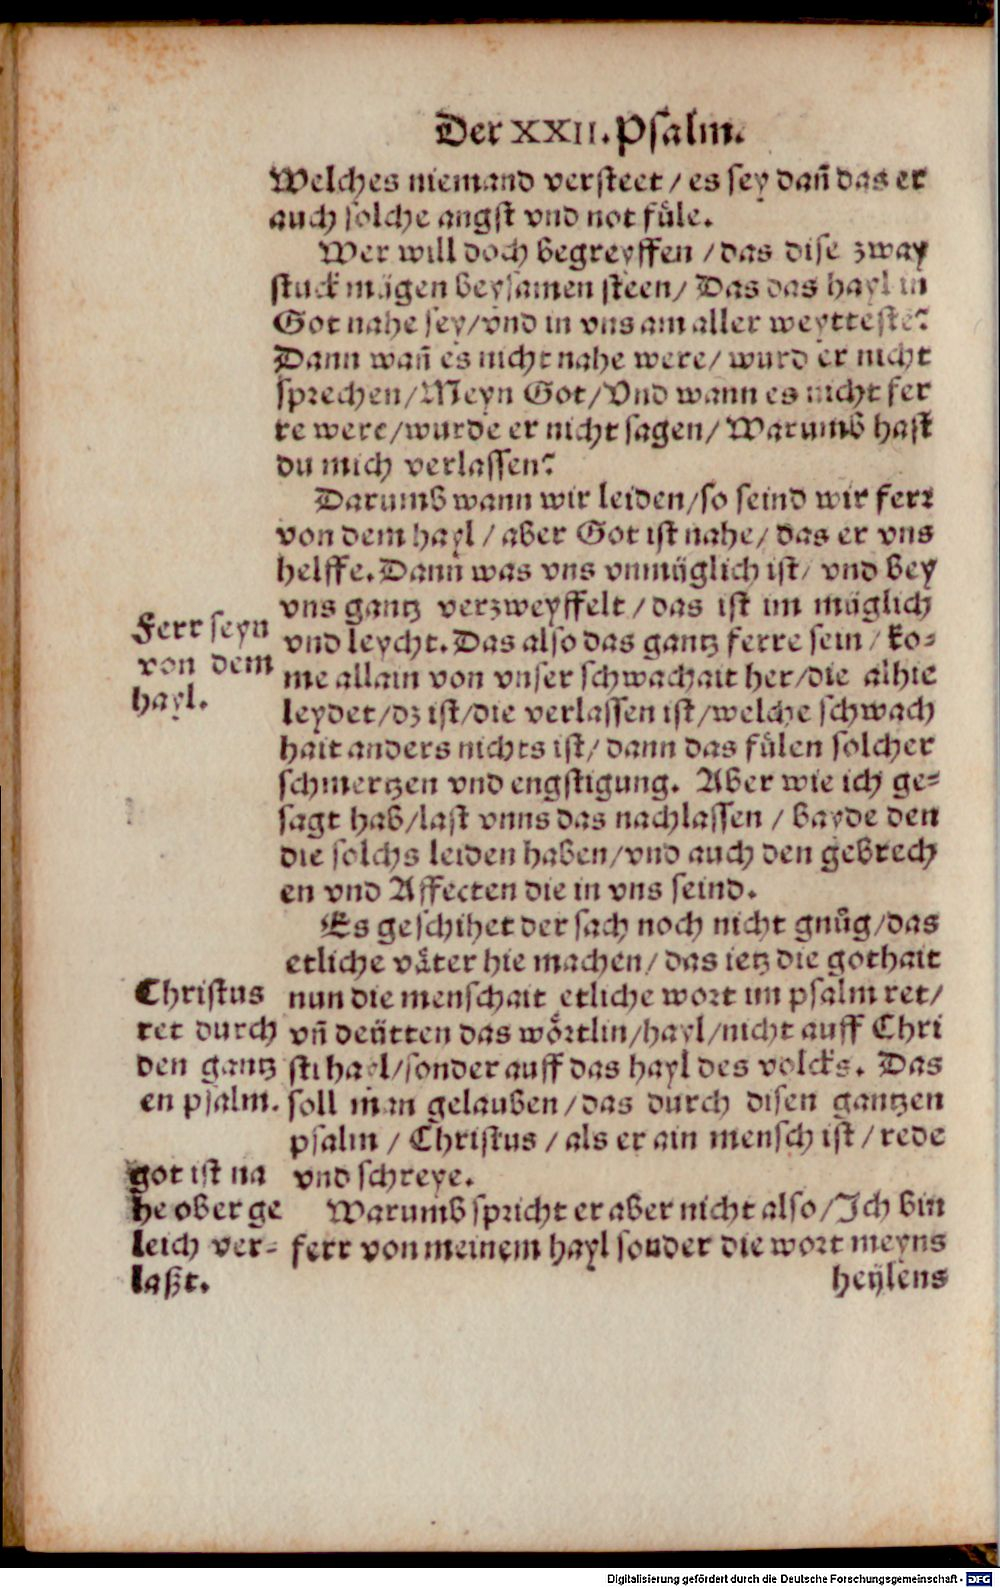 Der XXII. Psalm.
Welches niemand versteet / es sey dañ das er
auch solche angst vnd not fůle.
Wer will doch begreyffen / das dise zway
stuck mügen beysamen steen / Das das hayl in
Got nahe sey / vnd in vns am aller weytteste?
Dann wañ es nicht nahe were / wurd er nicht
sprechen / Meyn Got / Vnd wann es nicht fer
re were / wurde er nicht sagen / Warumb hast
du mich verlassen?
Darumb wann wir leiden / so seind wir ferr
von dem hayl / aber Got ist nahe / das er vns
helffe. Dann was vns vnmüglich ist / vnd bey
vns gantz verzweyffelt / das ist im müglich
Ferr seyn
von dem
hayl.
vnd leycht. Das also das gantz ferre sein / ko-
me allain von vnser schwachait her / die alhie
leydet / dz ist / die verlassen ist / welche schwach
hait anders nichts ist / dann das fůlen solcher
schmertzen vnd engstigung. Aber wie ich ge-
sagt hab / last vnns das nachlassen / bayde den
die solchs leiden haben / vnd auch den gebrech
en vnd Affecten die in vns seind.
Es geschihet der sach noch nicht gnůg / das
etliche väter hie machen / das ietz die gothait
Christus
ret durch
den gantz
en psalm.
nun die menschait etliche wort im psalm ret /
vñ deütten das wörtlin / hayl / nicht auff Chri
sti hayl / sonder auff das hayl des volcks. Das
soll man gelauben / das durch disen gantzen
psalm / Christus / als er ain mensch ist / rede
vnd schreye.
got ist na
he ober ge
leich ver-
laßt.
Warumb spricht er aber nicht also / Ich bin
ferr von meinem hayl sonder die wort meyns
heylens
Digitalisierung gefördert durch die Deutsche Forschungsgemeinschaft - DFG